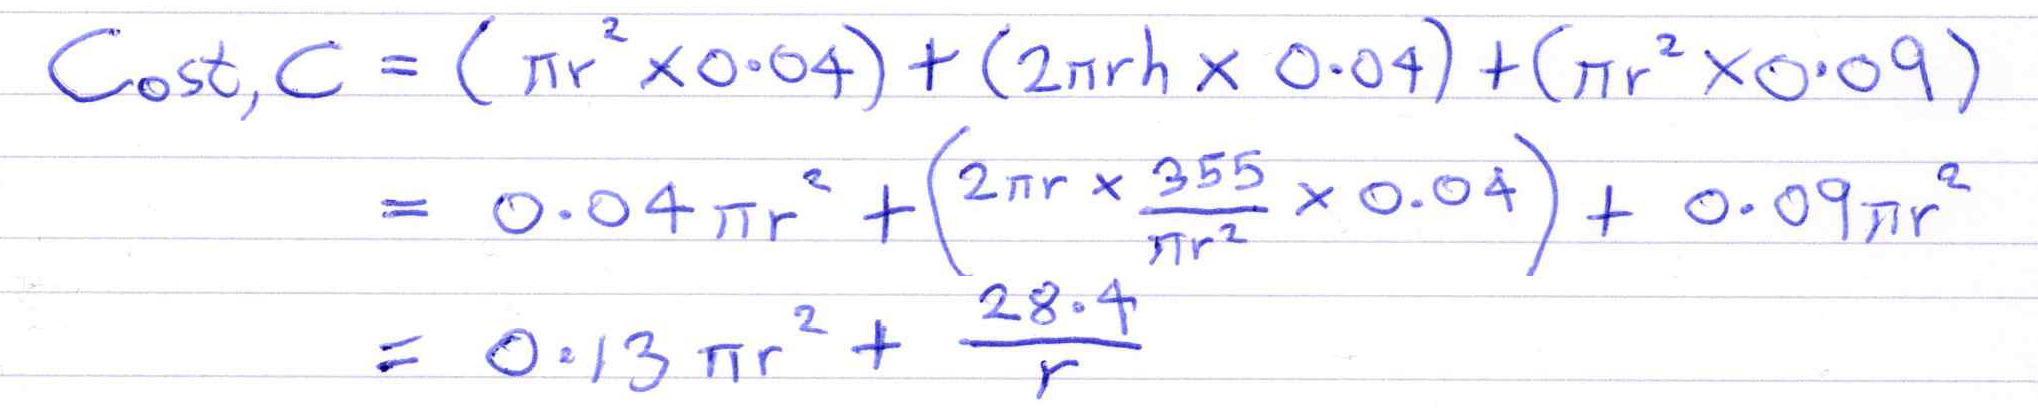 Cost, C = (πr² × 0.04) + (2πrh × 0.04) + (πr² × 0.09)
= 0.04πr² + (2πr × 355/πr² × 0.04) + 0.09πr²
= 0.13πr² + 28.4/r